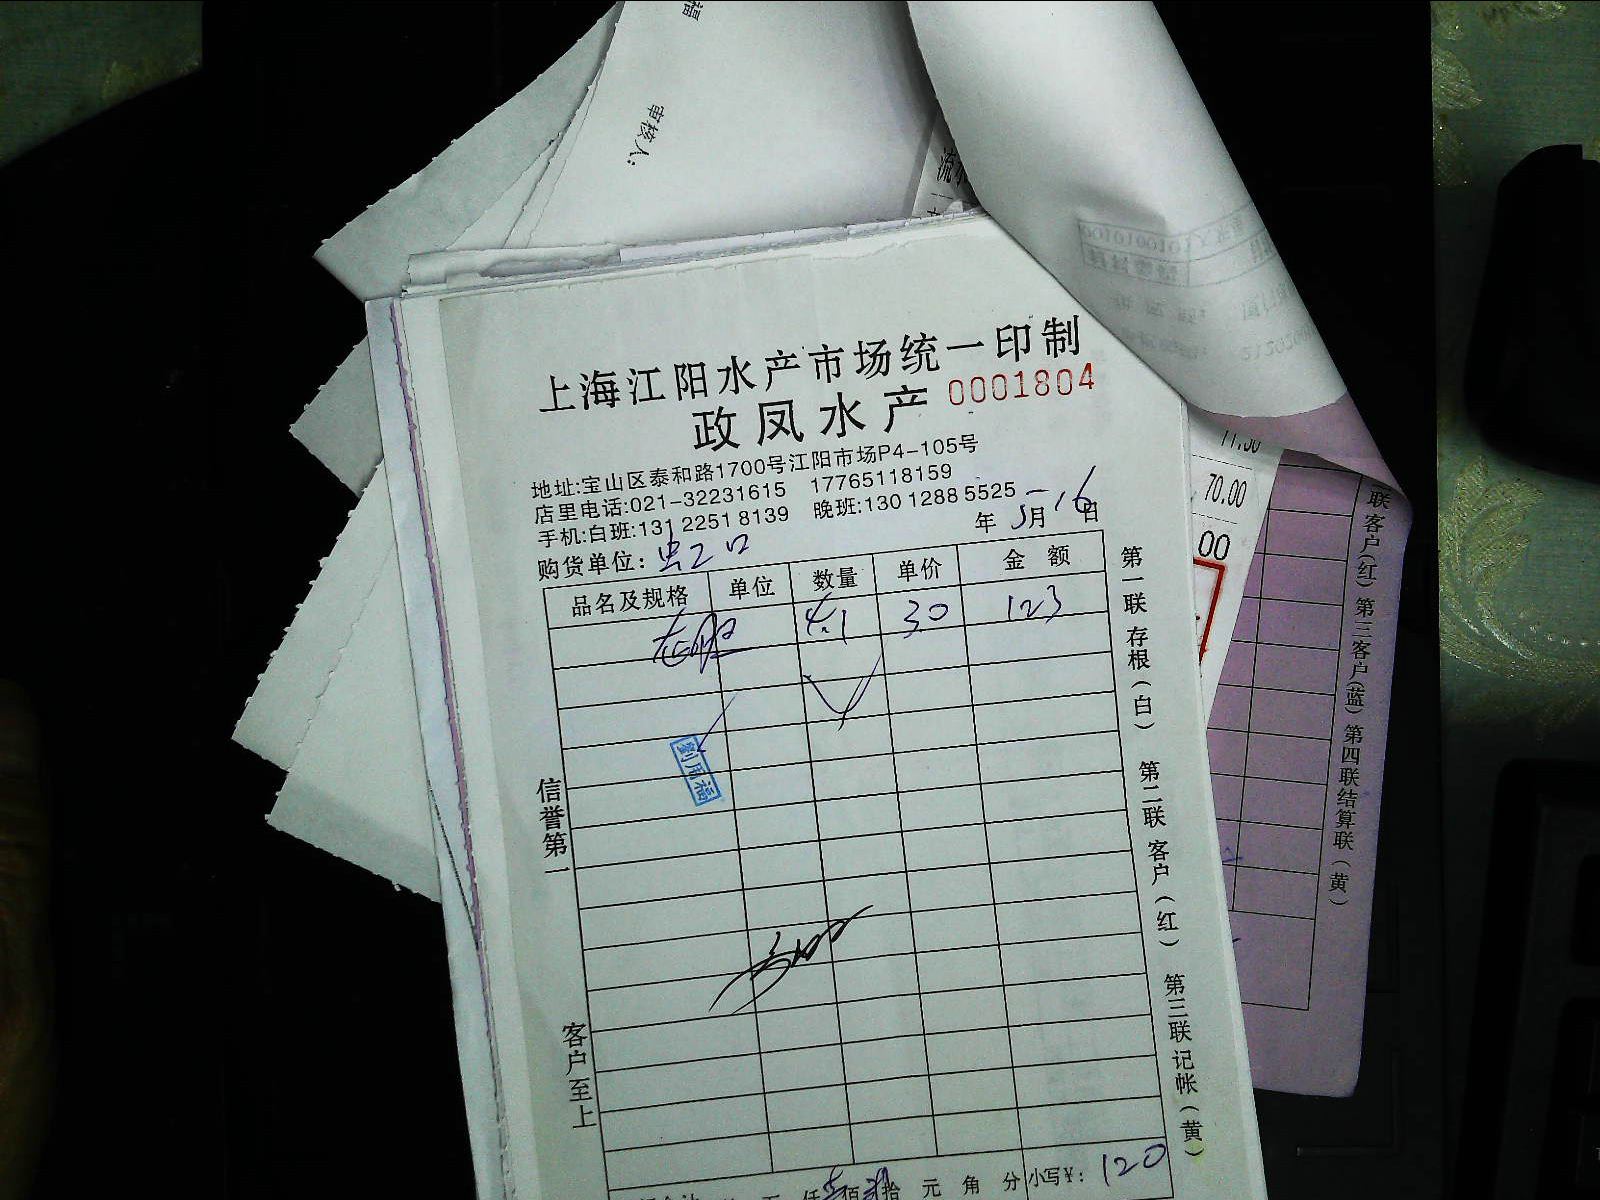 审核人:
上海江阳水产市场统一印制
政凤水产 0001804
地址:宝山区泰和路1700号江阳市场P4-105号
店里电话:021-32231615 17765118159
手机:白班:131 2251 8139 晚班:130 1288 5525
年 5月16日
购货单位:
品名及规格 单位 数量 单价 金额
4.1 30 123
劉用福
信誉第一
客户至上
第一联 存根(白) 第二联 客户(红) 第三联 记帐(黄)
仟壹佰贰拾 元 角 分 小写¥: 120
11.50
70.00
00
联客户(红) 第三客户(蓝) 第四联结算联(黄)